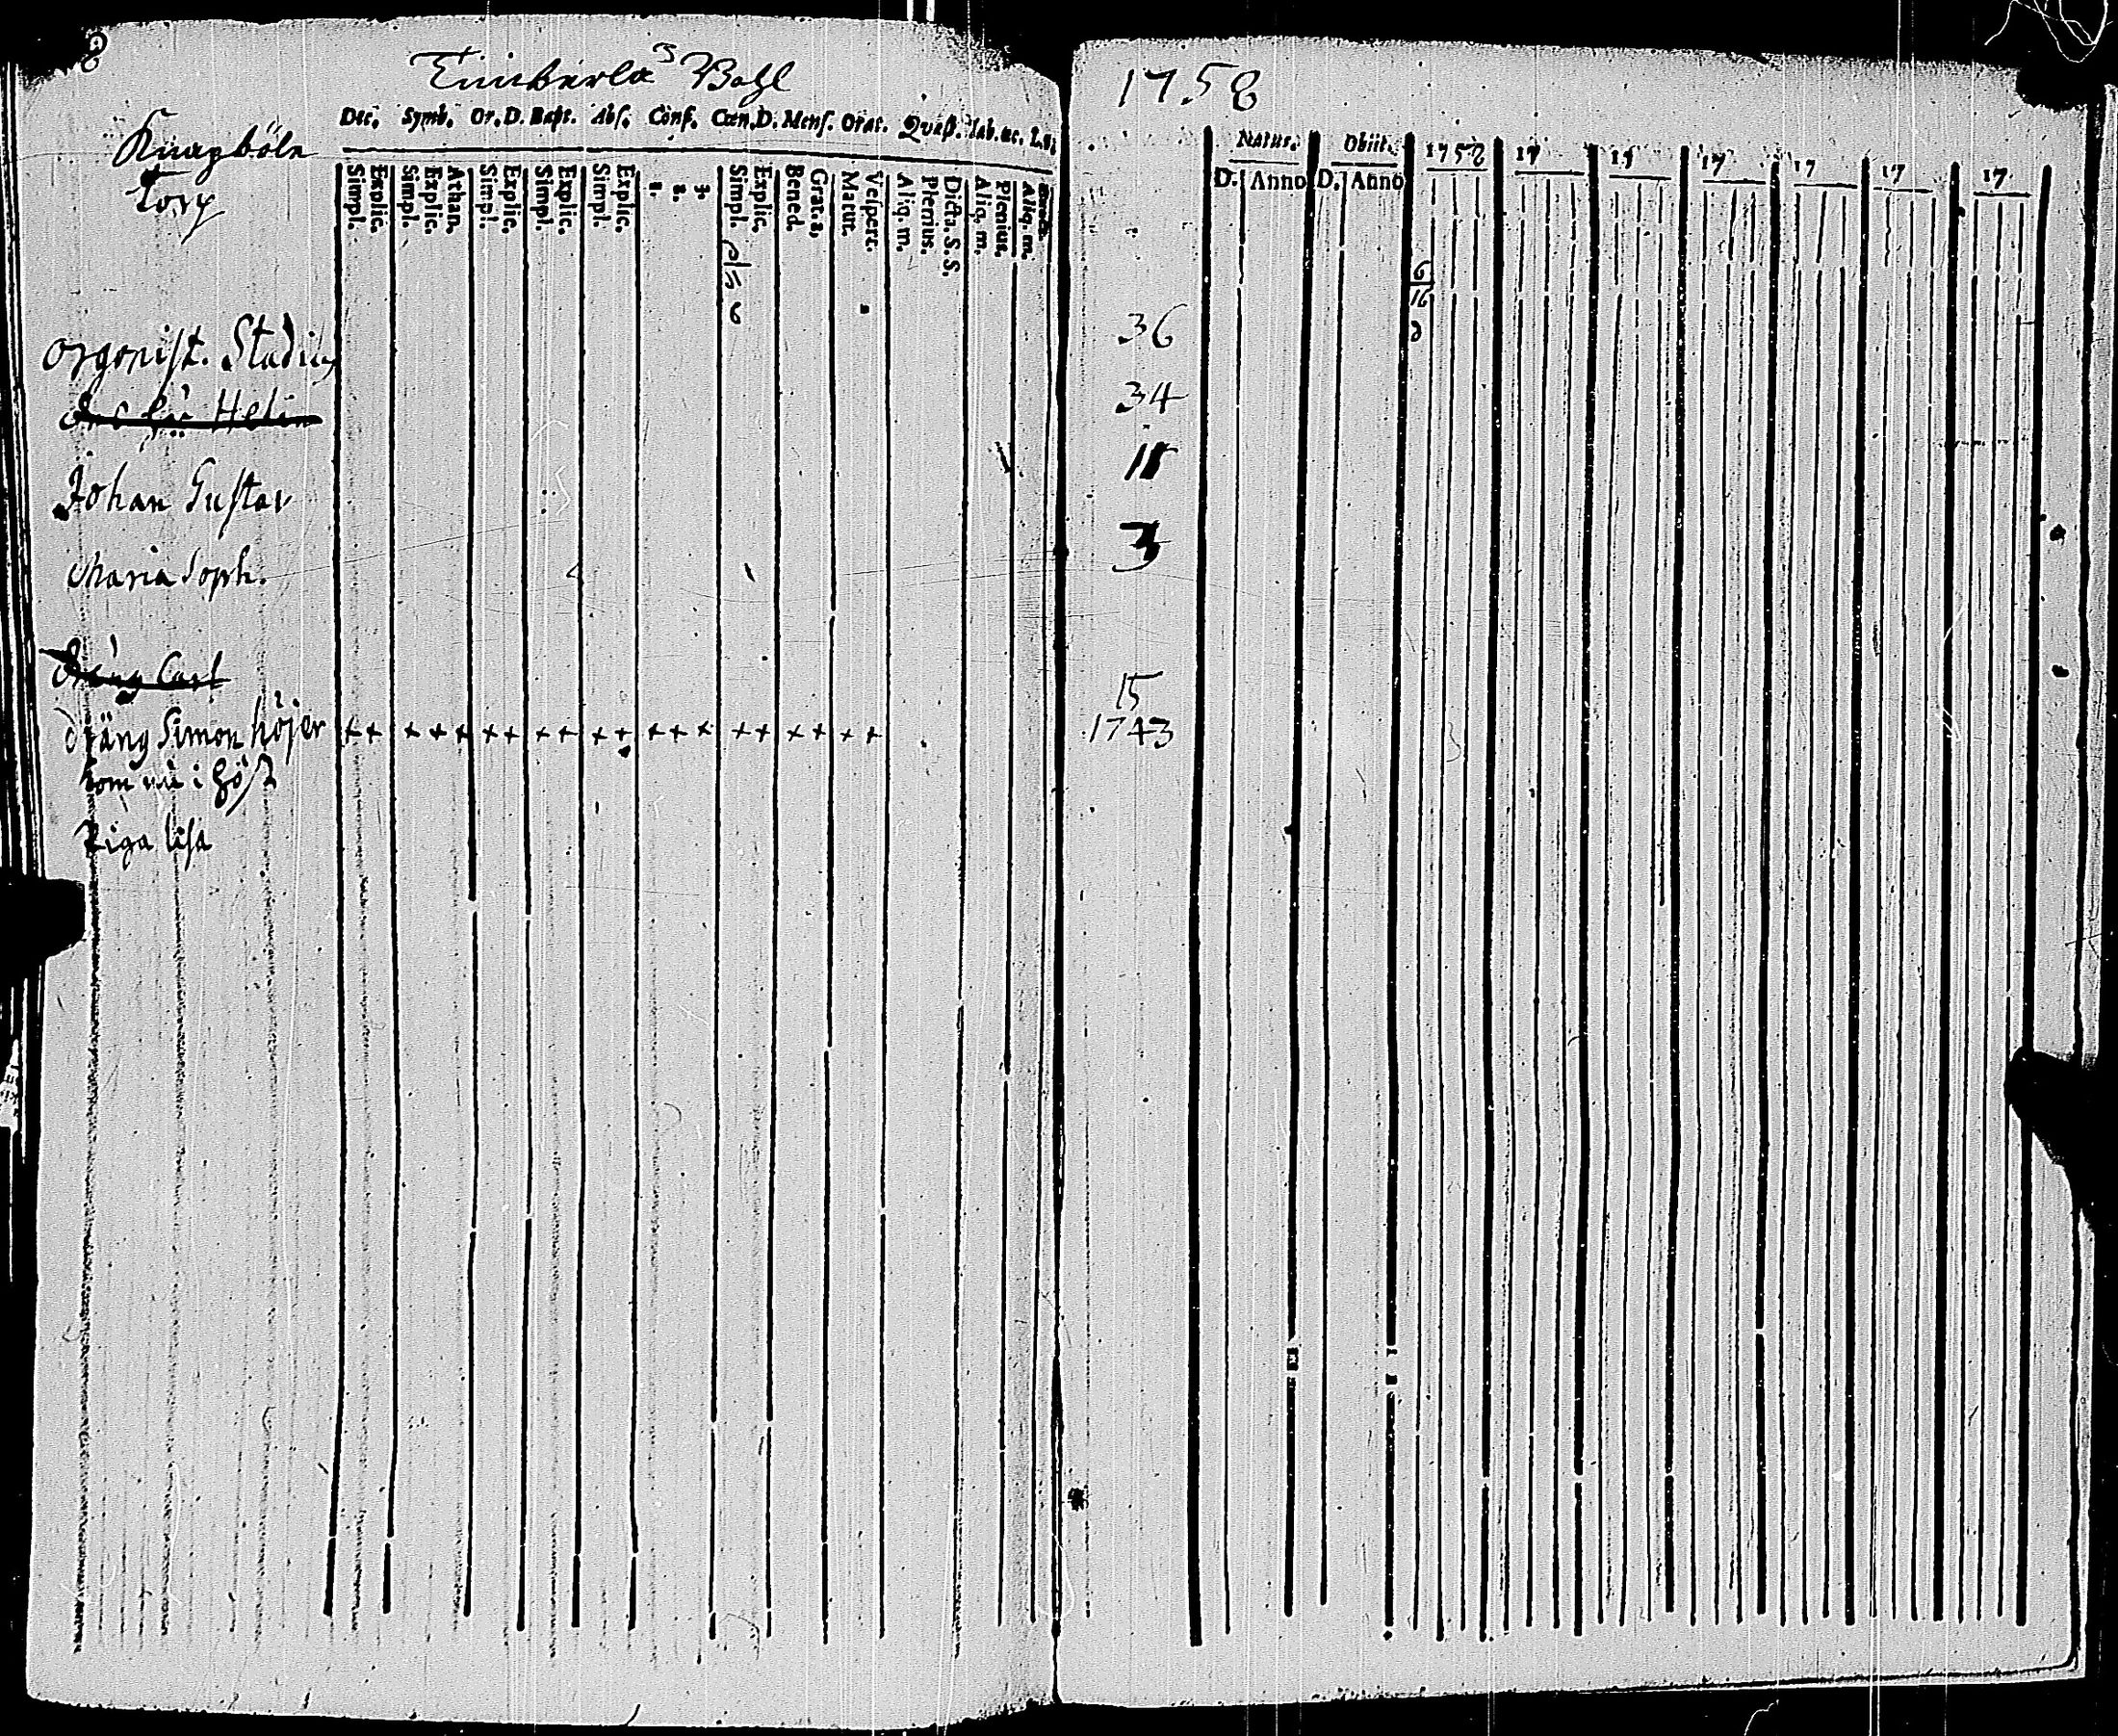 8
Timberla 3 Bohl
Dec. Symb. Or. D. Bapt. Abs. Conf. Cœn. D. Mens. Orat. Quæst. Tab. œc.
Knapböle
Torp
Simpl. Explic. Simpl. Explic. Athan. Simpl. Explic. Simpl. Explic. Simpl. Explic. 1. 2. 3. Simpl. Explic. Bened. Grat. a, Matut. Vespert. Aliq. m. Plenius. Dicta. S. S. Aliq. m. Plenius. Aliq. m.
Orgonist. Stadius
Johan Gustav
Maria Soph.
Dräng Carl
dräng Simon höjer + + + + + + + + + + + + + + + + + + + +
kom nu i höst
Piga lisa
1758
Natus. Obiit. 1758 17 17 17 17 17 17
D. Anno D. Anno
6
16
8
36
34
11
3
15
1743